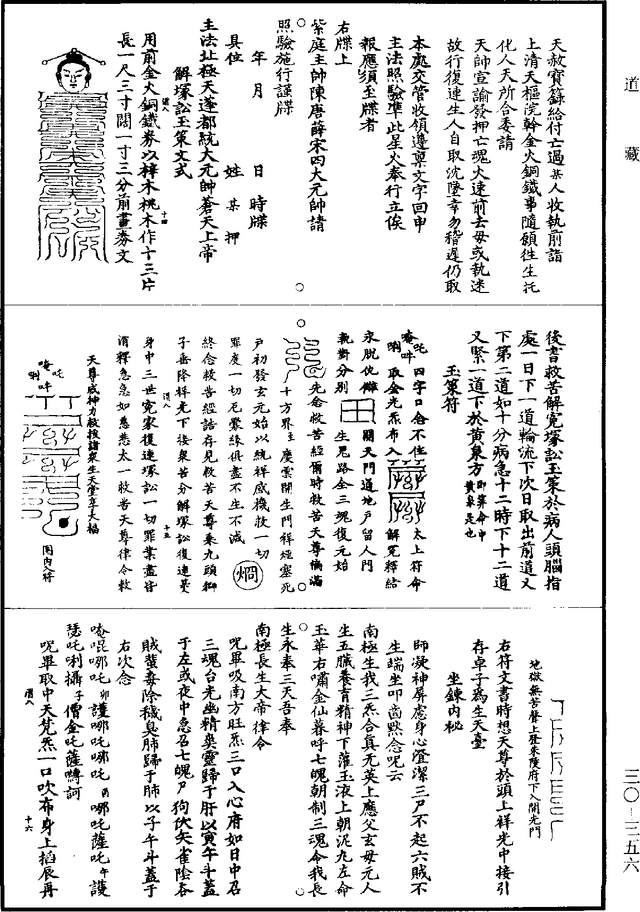 道藏
天赦寶籙給付亡過某人收執前詣
上清天樞院幹金火銅鐵事隨願徃生托
化人天所合委請
天師宣諭發押亡魂火速前去毋或執迷
故行復連生人自取沈墜幸勿稽遲仍取
本處交管收領邊稟文字回申
主法照驗準此星火奉行立俟
報應須至牒者
右牒上
紫庭主帥陳唐薛宋四大元帥請
照驗施行謹牒
年月日時牒
具位姓某押
主法北極天蓬都統大元帥蒼天上帝
解塚訟玉策文式
用前金火銅鐵券以梓木桃木作十三片
長一尺三寸闊一寸三分前畫券文
後書救苦解冤塚訟玉策於病人頭腦指
處一日下一道輪流下次日取出前道又
下第二道如十分病急十二時下十二道
又緊一道下於黃泉方即算命中黃泉是也
玉策符
唵吽吒唎四字口念不住
取金光炁布入
太上符命
解冤釋結
永脫仇讎
關天門道地戶留人門
執對分別
生思路全三魂復元始
先念救苦經爾時救苦天尊徧滿
十方界主慶雲開生門祥煙塞死
戶初發玄元始以統祥感機救一切
罪度一切厄冤緣俱盡不生不滅
終念救苦經誥存見救苦天尊乘九頭獅
子垂降祥光下接衆苦分解塚訟復連某
身中三世冤家復連塚訟一切罪業盡皆
消釋急急如慈悲太一救苦天尊律令敕
天尊威神力救拔諸衆生天堂享大福
唵吽吒唎
圈內入符
地獄無苦聲上登朱陵府下入開光門
右符文書時想天尊於頭上祥光中接引
存卓子爲生天臺
坐鍊内秘
師凝神屏慮身心澄潔三尸不起六賊不
生端坐叩齒默念呪云
南極生我三炁合真无英上應父玄母元人
生五臟養育精神下灌玉液上朝泥丸左命
玉華右嘯金仙暮呼七魄朝制三魂令我長
生永奉三天吾奉
南極長生大帝律令
呪畢吸南方旺炁三口入心府如日中召
三魂台光幽精爽靈歸于肝以寅午斗蓋
于左或夜中急召七魄尸狗伏矢雀陰吞
賊蜚毒除穢臭肺歸于肺以子午斗蓋于
右次念
唵嗢哪吒卯護哪吒哪吒酉哪吒薩吒午護
瑟吒唎攝子僧金吒薩囀訶
呪畢取中天梵炁一口吹布身上搯辰再
三〇-二五六